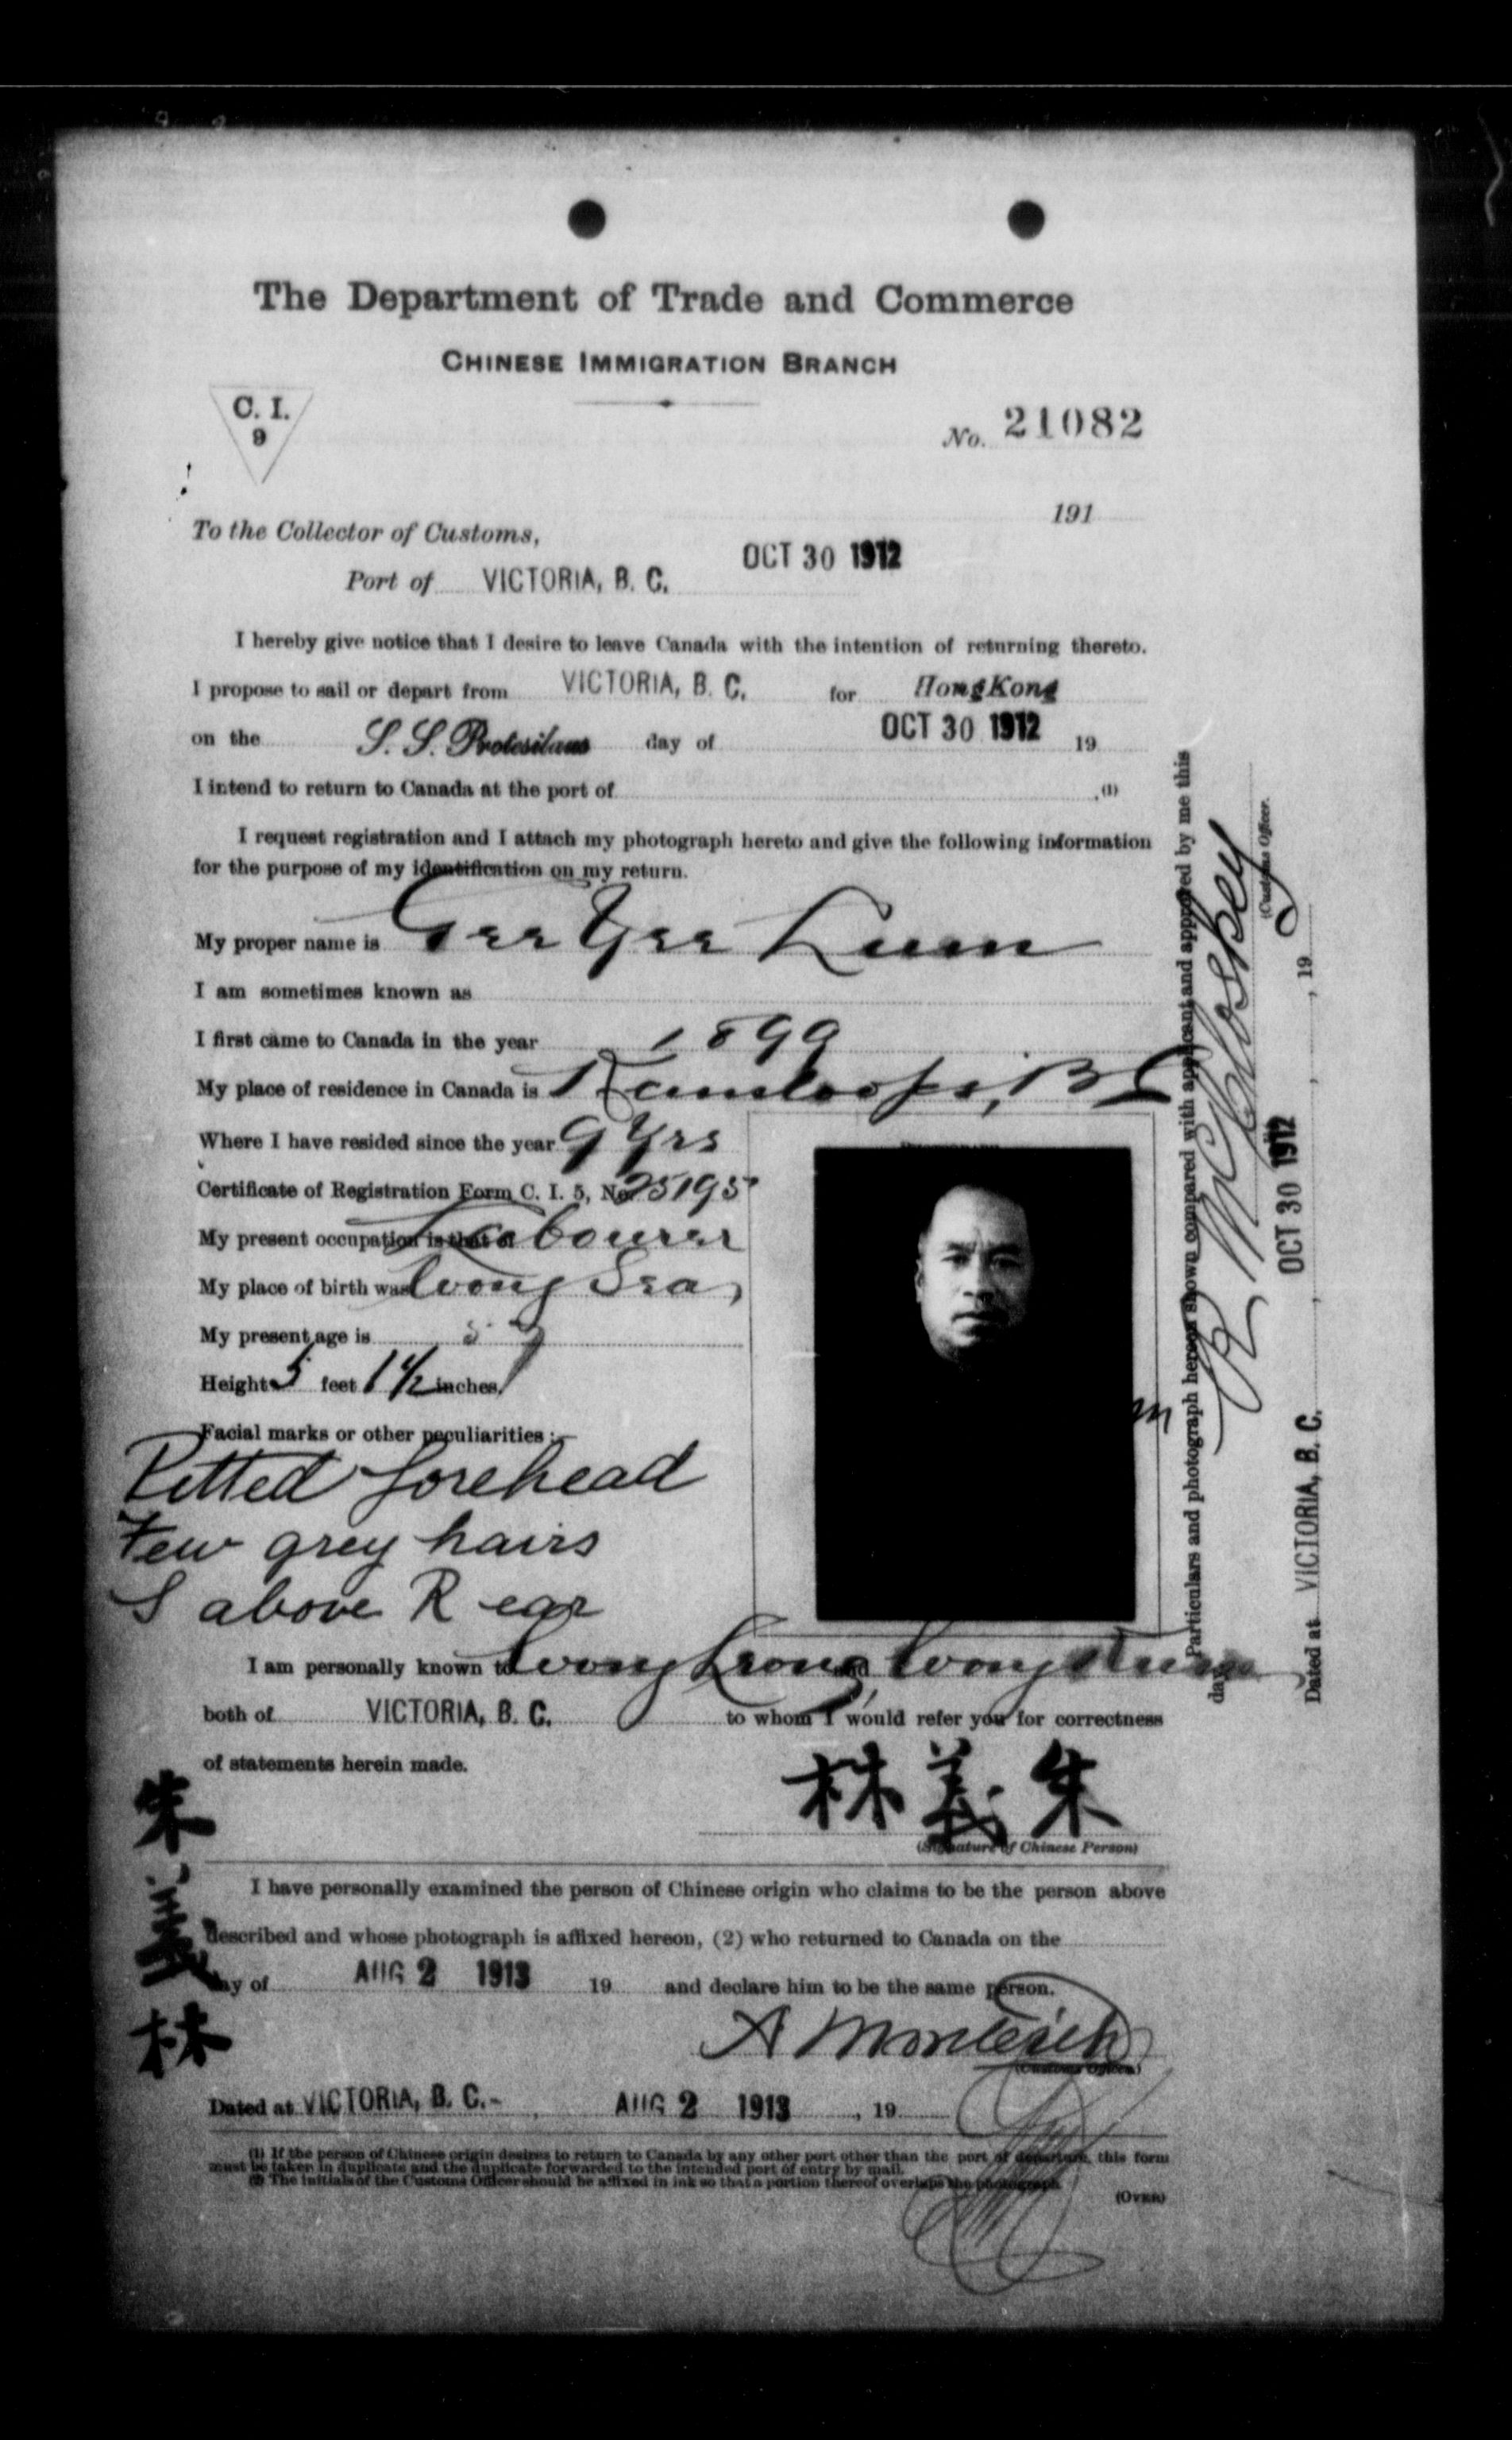 The Department of Trade and Commerce
CHINESE IMMIGRATION BRANCH
C. I.
9
No. 21082
191
To the Collector of Customs,
OCT 30 1912
Port of VICTORIA, B. C.
I hereby give notice that I desire to leave Canada with the intention of returning thereto.
I propose to sail or depart from VICTORIA, B. C. for HongKong
on the S. S. Protesilaus day of OCT 30 1912 19
I intend to return to Canada at the port of .(1)
I request registration and I attach my photograph hereto and give the following information
for the purpose of my identification on my return.
My proper name is Gee Yee Lum
I am sometimes known as
I first came to Canada in the year 1899
My place of residence in Canada is Kamloops, BC
Where I have resided since the year 9 Yrs
Certificate of Registration Form C. I. 5, No. 25195
My present occupation is that of Labourer
My place of birth was
My present age is
Height 5 feet 1 1/2 inches.
Facial marks or other peculiarities :—
Pitted forehead
Few grey hairs
S above R ear
I am personally known to Wong Leong, Wong
both of VICTORIA, B. C. to whom I would refer you for correctness
of statements herein made.
林義朱
(Signature of Chinese Person)
朱
義
林
I have personally examined the person of Chinese origin who claims to be the person above
described and whose photograph is affixed hereon, (2) who returned to Canada on the
day of AUG 2 1913 19 and declare him to be the same person.
A Monteith
(Customs Officer)
Dated at VICTORIA, B. C. - , AUG 2 1913 , 19
(1) If the person of Chinese origin desires to return to Canada by any other port other than the port of departure, this form
must be taken in duplicate and the duplicate forwarded to the intended port of entry by mail.
(2) The initials of the Customs Officer should be affixed in ink so that a portion thereof overlaps the photograph.
(OVER)
Particulars and photograph hereon shown compared with applicant and approved by me this
day
R McCloskey
(Customs Officer.
Dated at VICTORIA, B. C. , OCT 30 1912 , 19